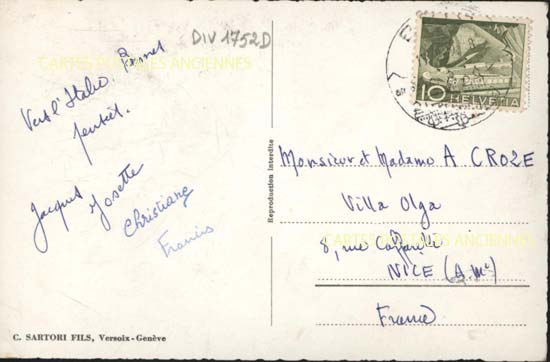 DIV 1752D
CARTES POSTALES ANCIENNES
Vers l'Italie.
Jacques
Josette
Christiane
Francis
C. SARTORI FILS, Versoix-Genève
Reproduction interdite
10 HELVETIA
Monsieur et Madame A CROZE
Villa Olga
8, rue Caffarelli
CARTES POSTALES ANCIENNES
NICE (A.M.)
France